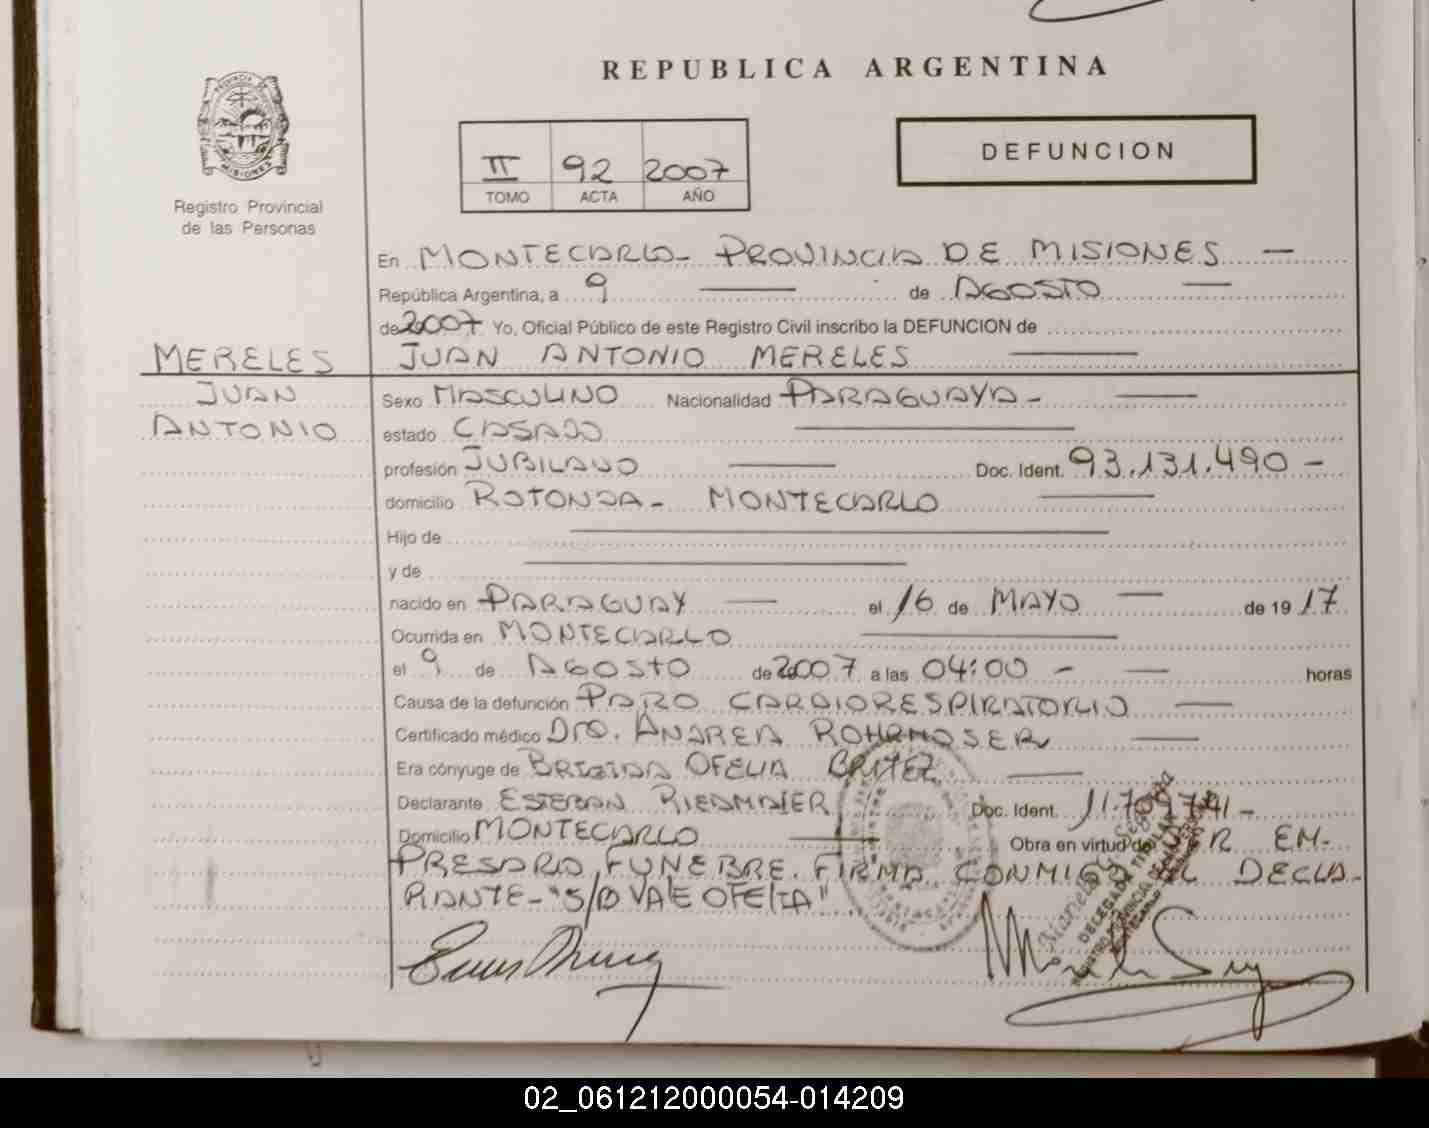 REPUBLICA ARGENTINA
PROVINCIA
MISIONES
Registro Provincial
de las Personas
II 92 2007
TOMO ACTA AÑO
DEFUNCION
En MONTECARLO - PROVINCIA DE MISIONES —
República Argentina, a 9 — de AGOSTO —
de 2007 Yo, Oficial Público de este Registro Civil inscribo la DEFUNCION de
MERELES JUAN ANTONIO MERELES —
JUAN
ANTONIO
Sexo MASCULINO Nacionalidad PARAGUAYA - —
estado CASADO —
profesión JUBILADO — Doc. Ident. 93.131.490 -
domicilio ROTONDA - MONTECARLO —
Hijo de —
y de —
nacido en PARAGUAY — el 16 de MAYO — de 19 17
Ocurrida en MONTECARLO —
el 9 de AGOSTO de 2007 a las 04:00 - — horas
Causa de la defunción PARO CARDIORESPIRATORIO —
Certificado médico DRA. ANDREA ROHRMOSER —
Era cónyuge de BRIGIDA OFELIA BRITEZ —
Declarante ESTEBAN RIEDMAIER Doc. Ident.
Domicilio MONTECARLO — Obra en virtud de SER EM-
PRESARIO FUNEBRE. FIRMA CONMIGO EL DECLA-
RANTE - "S/B VALE OFELIA"
DELEGADA TITULAR
02_061212000054-014209